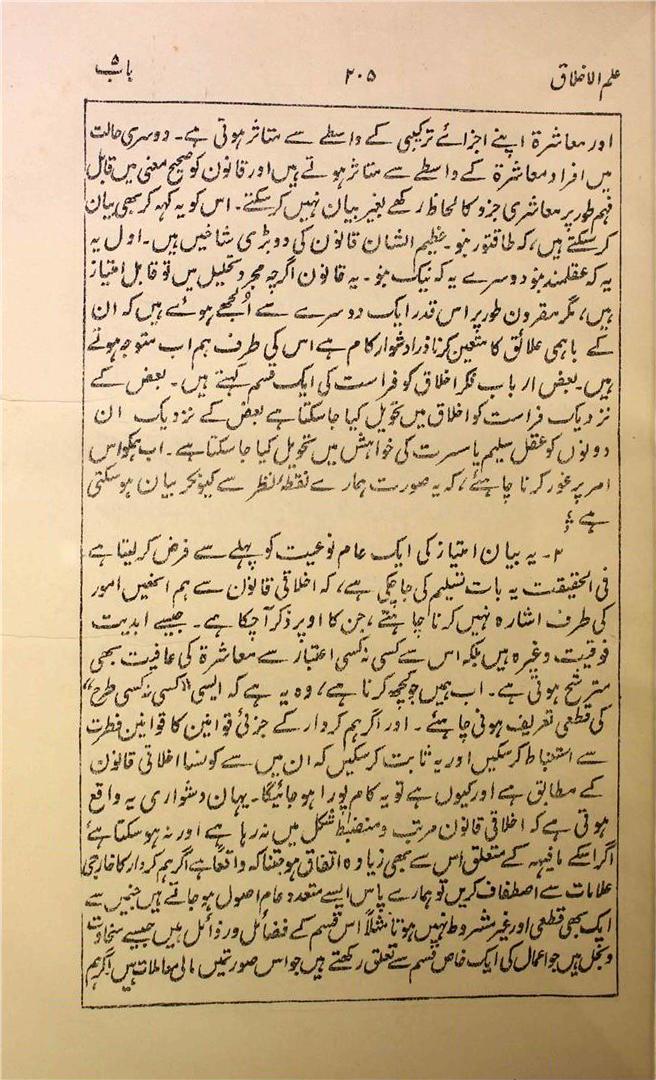 علم الاخلاق ۲۰۵ باب ۵
اور معاشرۃ اپنے اجزائے ترکیبی کے واسطے سے متاثر ہوتی ہے۔ دوسری حالت
میں افراد معاشرۃ کے واسطے سے متاثر ہوتے ہیں اور قانون کو صحیح معنی میں قابل
فہم طور پر معاشری جزو کا لحاظ رکھے بغیر بیان نہیں کر سکتے۔ اس کو یہ کہہ کر بھی بیان
کر سکتے ہیں، کہ طاقتور بنو۔ عظیم الشان قانون کی دو بڑی شاخیں ہیں۔ اول یہ
یہ کہ عقلمند بنو دوسرے یہ کہ نیک بنو۔ یہ قانون اگرچہ مجرد تحلیل میں تو قابل امتیاز
ہیں، مگر مقرون طور پر اس قدر ایک دوسرے سے اُلجھے ہوئے ہیں کہ ان
کے باہمی علائق کا متعین کرنا ذرا دشوار کام ہے اس کی طرف ہم اب متوجہ ہوتے
ہیں۔ بعض ارباب فکر اخلاق کو فراست کی ایک قسم کہتے ہیں۔ بعض کے
نزدیک فراست کو اخلاق میں تحویل کیا جا سکتا ہے بعض کے نزدیک ان
دونوں کو عقل سلیم یا مسرت کی خواہش میں تحویل کیا جا سکتا ہے۔ اب ہمکو اس
امر پر غور کرنا چاہئے، کہ یہ صورت ہمارے نقطۂ نظر سے کیونکر بیان ہو سکتی
ہے؛
۲۔ یہ بیان امتیاز کی ایک عام نوعیت کو پہلے سے فرض کر لیتا ہے
فی الحقیقت یہ بات تسلیم کی جا چکی ہے، کہ اخلاقی قانون سے ہم انھیں امور
کی طرف اشارہ نہیں کرنا چاہتے، جن کا اوپر ذکر آ چکا ہے۔ جیسے ابدیت
فوقیت وغیرہ ہیں بلکہ اس سے کسی نہ کسی اعتبار سے معاشرۃ کی عافیت بھی
مترشح ہوتی ہے۔ اب ہمیں جو کچھ کرنا ہے، وہ یہ ہے کہ ایسی "کسی نہ کسی طرح"
کی قطعی تعریف ہونی چاہئے۔ اور اگر ہم کردار کے جزئی قوانین کا قوانین فطرت
سے استنباط کر سکیں اور یہ ثابت کر سکیں کہ ان میں سے کونسا اخلاقی قانون
کے مطابق ہے اور کیوں ہے تو یہ کام پورا ہو جائیگا۔ یہاں دشواری یہ واقع
ہوتی ہے کہ اخلاقی قانون مرتب و منضبط شکل میں نہ رہا ہے اور نہ ہو سکتا ہے
اگر اسکے مافیہہ کے متعلق اُس سے بھی زیادہ اتفاق ہو جتنا کہ واقعاً ہے اگر ہم کردار کا خارجی
علامات سے اصطفاف کریں تو ہمارے پاس ایسے متعدد عام اصول ہو جاتے ہیں جنمیں سے
ایک بھی قطعی اور غیر مشروط نہیں ہوتا مثلاً اس قسم کے فضائل و رذائل ہیں جیسے سخاوت
و بخل ہیں جو اعمال کی ایک خاص قسم سے تعلق رکھتے ہیں جو اس صورتمیں مالی معاملات ہیں اگر ہم